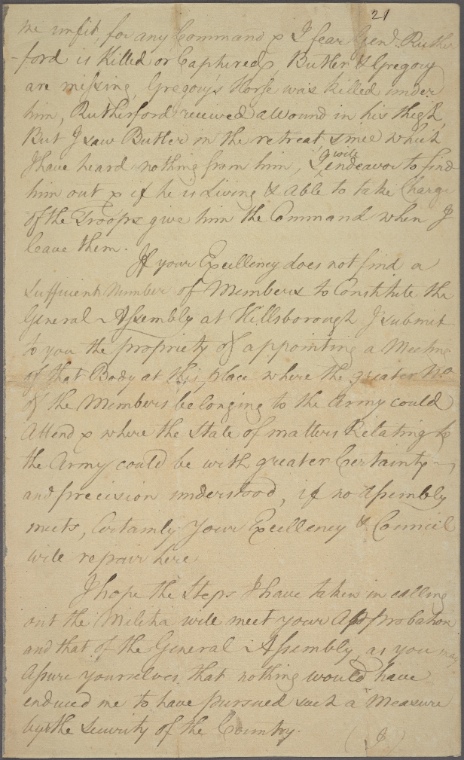 21
me unfit for any Command & I fear Genl. Ruth
-ford is Killed or Captured, Butler & Gregory
are missing, Gregory's Horse was killed under
him, Rutherford received a Wound in his thigh,
But I saw Butler in the retreat since which
I have heard nothing from him, I will endeavor to find
him out & if he is Living & able to take Charge
of the Troops give him the Command when I
leave them.
If your Excellency does not find a
Sufficient Number of Members to Constitute the
General Assembly at Hillsborough I submit
to you the propriety of appointing a Meeting
of that Body at this place where the greater No
of the Members belonging to the Army could
Attend & where the State of matters Relating to
the Army could be with greater Certainty
and precision understood, if no Assembly
meets, Certainly Your Excellency & Council
will repair here
I hope the Steps I have taken in calling
out the Militia will meet your Approbation
and that of the General Assembly, as you may
Assure yourselves, that nothing would have
enduced me to have pursued such a Measure
but the Security of the Country.